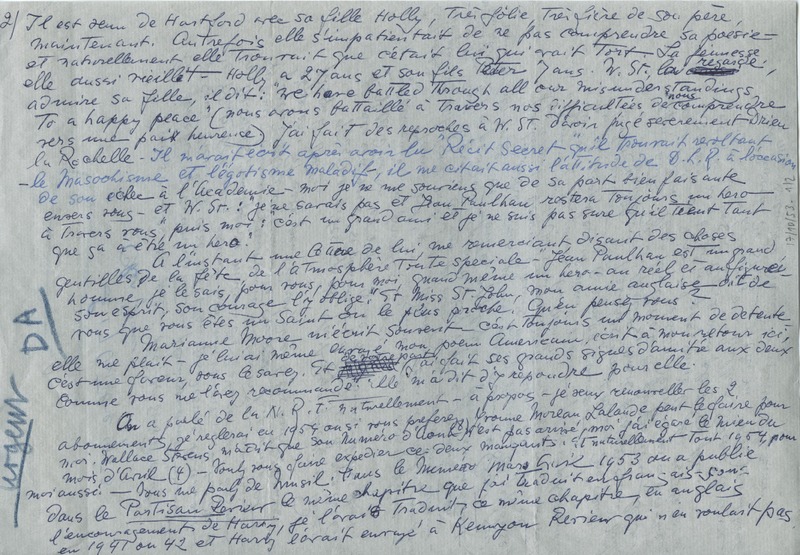 2/ Il est venu de Hartford avec sa fille Holly, Très jolie, Très fière de son père,
maintenant. Autrefois elle s'impatientait de ne pas comprendre sa poésie -
et naturellement elle trouvait que c'était lui qui avait Tort - La jeunesse
elle aussi vieillit - Holly a 27 ans et son fils Peter 7 ans. W. St. la regarde,
admire sa fille, il dit: "we have battled through all our misunderstandings
To a happy place" (nous avons bataillé à travers nos difficultés de nous comprendre
vers une paix heureuse) J'ai fait des reproches à W. ST. d'avoir jugé sévèrement Drieu
la Rochelle - Il m'avait écrit après avoir lu "Récit Secret" qu'il trouvait révoltant
le Masochisme et l'égotisme maladif, il me citait aussi l'attitude de D.L.R. à l'occasion
de son échec à l'Académie - moi je ne me souviens que de sa part bienfaisante
envers vous - et W. St.: "je ne savais pas et Jean Paulhan restera toujours un hero
à travers vous" puis moi: "c'est un grand ami et je ne suis pas sure qu'il tient tant
que ça à être un hero."
A l'instant une lettre de lui me remerciant disant des choses
gentilles de la fête, de l'atmosphère toute speciale - Jean Paulhan est un grand
homme, je le sais, pour vous, pour moi, quand même un hero - au réel et au figuré,
son esprit, son courage l'y oblige" Et Miss St. John, mon amie anglaise dit de
vous que vous êtes un Saint ou le plus proche. Qu'en pensez vous?
Marianne Moore m'écrit souvent - c'est toujours un moment de détente
elle me plait - je lui ai même envoyé mon poem Americain, écrit à mon retour ici,
c'est une faveur, vous le savez. Et j'ai fait ses grands signes d'amitié aux deux
comme vous me l'avez recommandé: elle m'a dit d'y repondre pour elle.
On a parlé de la N.R.F. naturellement - a propos - je veux renouveller les 2
abonnements, je reglerai en 1954 ou si vous preferez Yvonne Moreau Lalande peut le faire pour
moi. Wallace Stevens m'a dit que son numéro d'Aout n'est pas arrivé, moi j'ai égaré le mien du
mois d'Avril (4) - Voulez vous faire expédier ces deux manquants: et naturellement tout 1954 pour
moi aussi - Vous me parlez de Musil: dans le Numero Mars Avril 1953 on a publié
dans le Partisan Review le même chapitre que j'ai traduit en français - sous
l'encouragements de Harry, je l'avais Traduit, ce même chapitre, en anglais
en 1941 ou 42 et Harry l'avait envoyé à Kenyon Review qui n'en voulait pas
urgent DA
17/10/53